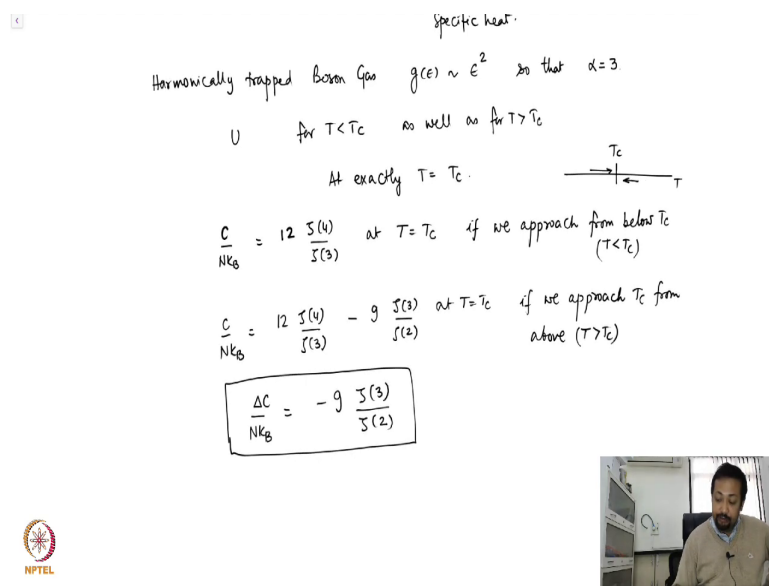 Specific heat.
Harmonically trapped Boson Gas g(ϵ) ~ ϵ² so that α=3
U for T<Tc as well as for T>Tc
At exactly T= Tc.
Tc
T
C/NkB = 12 ζ(4)/ζ(3) at T= Tc if we approach from below Tc
(T<Tc)
C/NkB = 12 ζ(4)/ζ(3) - 9 ζ(3)/ζ(2) at T=Tc if we approach Tc from
above (T>Tc)
ΔC/NkB = -9 ζ(3)/ζ(2)
NPTEL